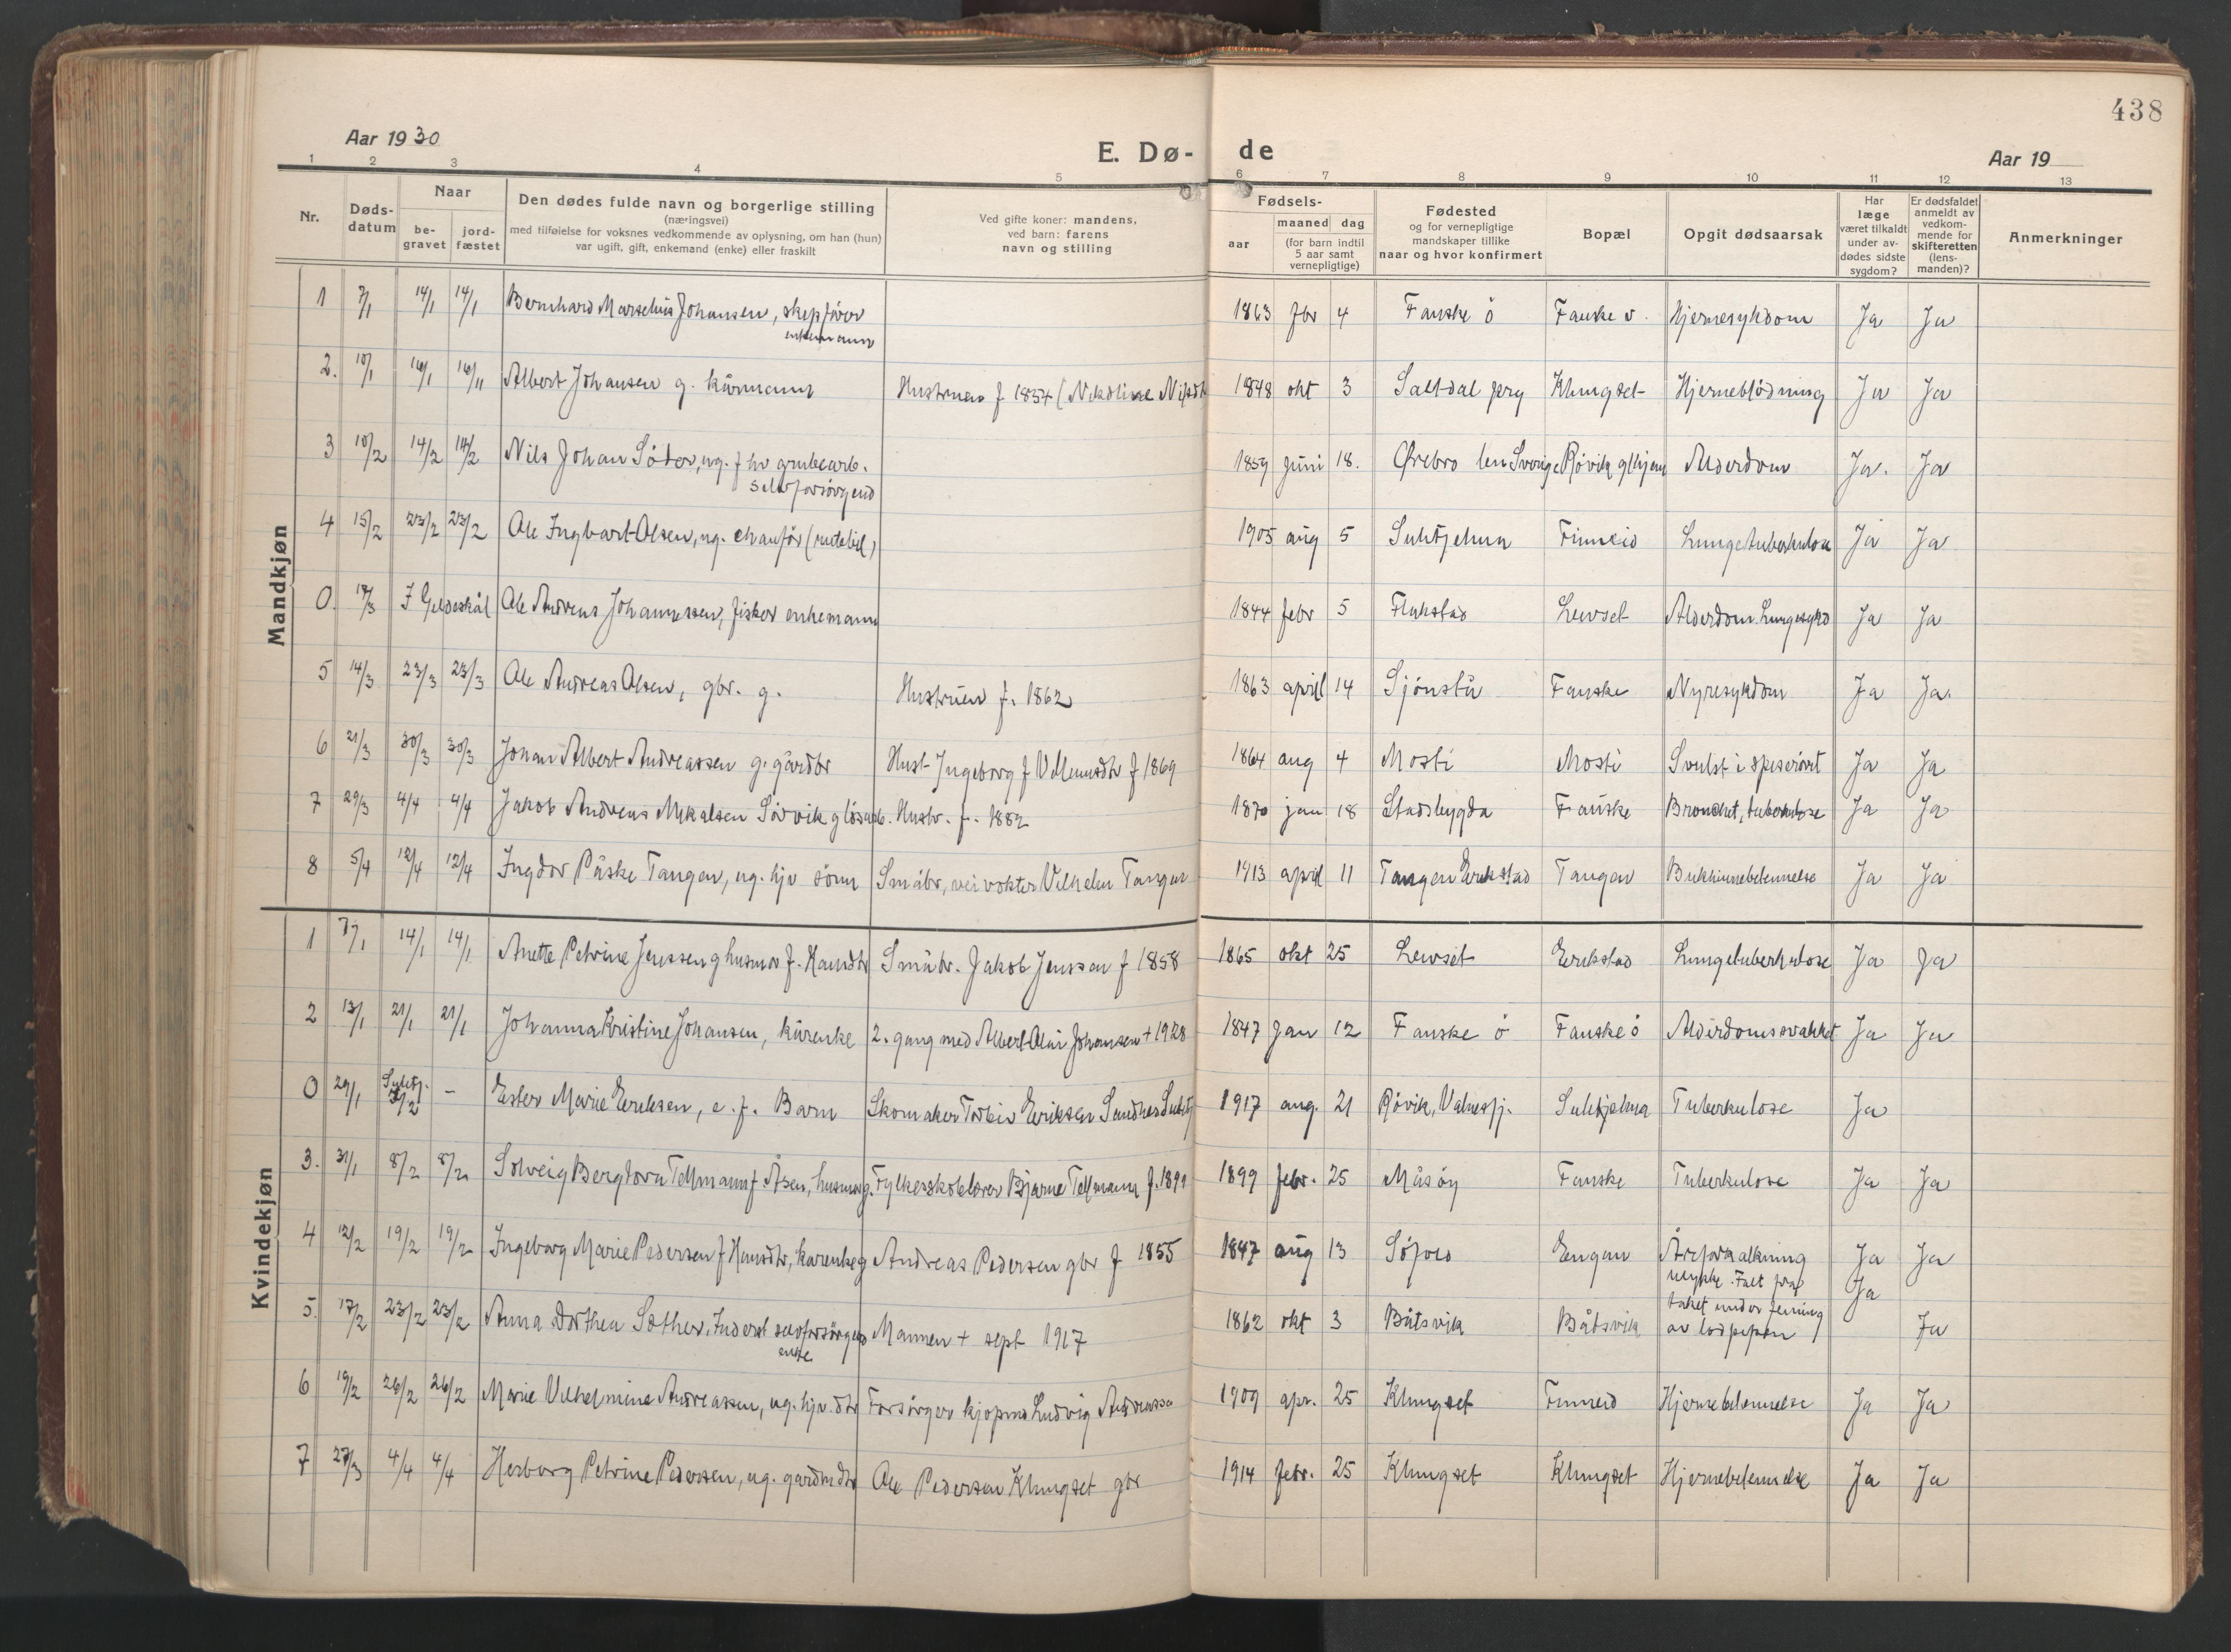 438
Aar 1930
E. Dø- de
Aar 19
1 2 3 4 5 6 7 8 9 10 11 12 13
Nr.
Døds-
datum
Naar
be-
gravet
jord-
fæstet
Den dødes fulde navn og borgerlige stilling
(næringsvei)
med tilføielse for voksnes vedkommende av oplysning, om han (hun)
var ugift, gift, enkemand (enke) eller fraskilt
Ved gifte koner: mandens,
ved barn: farens
navn og stilling
Fødsels-
aar
maaned dag
(for barn indtil
5 aar samt
vernepligtige)
Fødested
og for vernepligtige
mandskaper tillike
naar og hvor konfirmert
Bopæl
Opgit dødsaarsak
Har
læge
været tilkaldt
under av-
dødes sidste
sygdom?
Er dødsfaldet
anmeldt av
vedkom-
mende for
skifteretten
(lens-
manden)?
Anmerkninger
Mandkjøn
1 7/1 14/1 14/1 Bernhard Marselius Johansen, skepfører 1863 fbr 4 Fauske ö Fauske ö. Hjernesykdom Ja Ja
enkemann
2. 10/1 16/1 16/1 Albert Johansen g. kårmann Hustruen f 1854 (Nikoline Nilsdtr 1848 okt 3 Saltdal prg Klungset Hjerneblödning Ja Ja
3 10/2 14/2 14/2 Nils Johan Söder, ug. fhv grubearb. 1859 juni 18. Ørebro len Sverige Rövik glhjem Alderdom Ja. Ja
selvforsörgend
4 15/2 23/2 23/2 Ole Ingbart Olsen, ug. chauför (rutebil) 1905 aug 5 Sulitjelma Finneid Lungetuberkulose Ja Ja
0. 12/3 I Gildeskål Ole Andreas Johannessen, fisker enkemann 1844 febr 5 Flakstad Leivset Alderdom. Lungesykd Ja Ja
5 14/3 23/3 23/3 Ole Andreas Olsen, gbr. g. Hustruen f. 1862 1863 april 14 Sjönstå Fauske Nyresykdom Ja Ja.
6 21/3 30/3 30/3 Johan Albert Andreassen g. gårdbr Hust Ingeborg f Villumsdtr f 1869 1864 aug 4 Mosti Mosti Svulst i spiseröret Ja Ja
7 29/3 4/4 4/4 Jakob Andreas Mikalsen Sörvik g lösarb. Hustr. f. 1882 1870 jan 18 Stadsbygda Fauske Bronchit, tuberkulose Ja Ja
8 5/4 12/4 12/4 Ingdor Påske Tangen, ug. hjv sönn Småbr, veivokter Vilhelm Tangen 1913 april 11 Tangen Erikstad Tangen Bukhinnebetennelse Ja Ja
Kvindekjøn
1 7/1 14/1 14/1 Anette Petrine Jenssen g husmor f. Hansdtr Småbr. Jakob Jenssen f 1858 1865 okt 25 Leivset Erikstad Lungetuberkulose Ja Ja
2 13/1 21/1 21/1 Johanna Kristine Johansen, kårenke 2. gang med Albert Olai Johansen + 1928 1847 Jan 12 Fauske ö Fauske ö Alderdomssvakhet Ja Ja
0 29/1 Sulitj. – Ester Marie Eriksen, e. f. Barn Skomaker Torleiv Eriksen Sandnes Sulitj 1917 aug. 21 Rövik, Valnesfj. Sulitjelma Tuberkulose Ja
3. 31/1 8/2 8/2 Solveig Bergtora Tellmann f. Åsen, husmor g. Fylkesskolelærer Bjarne Tellmann f. 1891 1899 febr. 25 Måsöy Fauske Tuberkulose Ja Ja
4 12/2 19/2 19/2 Ingeborg Marie Pedersen f Hansdtr, kårenke g Andreas Pedersen gbr f 1855 1847 aug 13 Sörfold Engan Åreforkalkning Ja Ja
5. 17/2 23/2 23/2 Anna Dorthea Sæther, Inderst selvforsörgend Mannen + sept 1917 1862 okt 3 Båtsvik Båtsvik Ulykke. Falt fra Ja
enke
taket under feining
av lodpipen Ja
6 19/2 26/2 26/2 Marie Vilhelmine Andreassen, ug. hjv. dtr Forsörger kjøpm Ludvig Andreassen 1909 apr. 25 Klungset Finneid Hjernebetennelse Ja Ja
7 27/3 4/4 4/4 Herborg Petrine Pedersen, ug. gårdmdtr Ole Pedersen Klungset gbr 1914 febr. 25 Klungset Klungset Hjernebetennelse Ja Ja